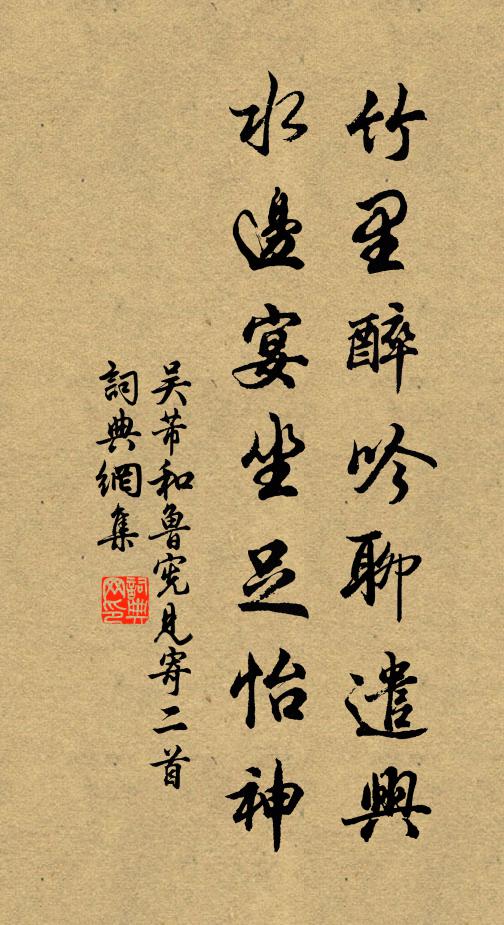 竹里醉吟聊遣興
水邊宴坐足怡神
吴芾和魯宪見寄二首
詞典網集
詞典网印